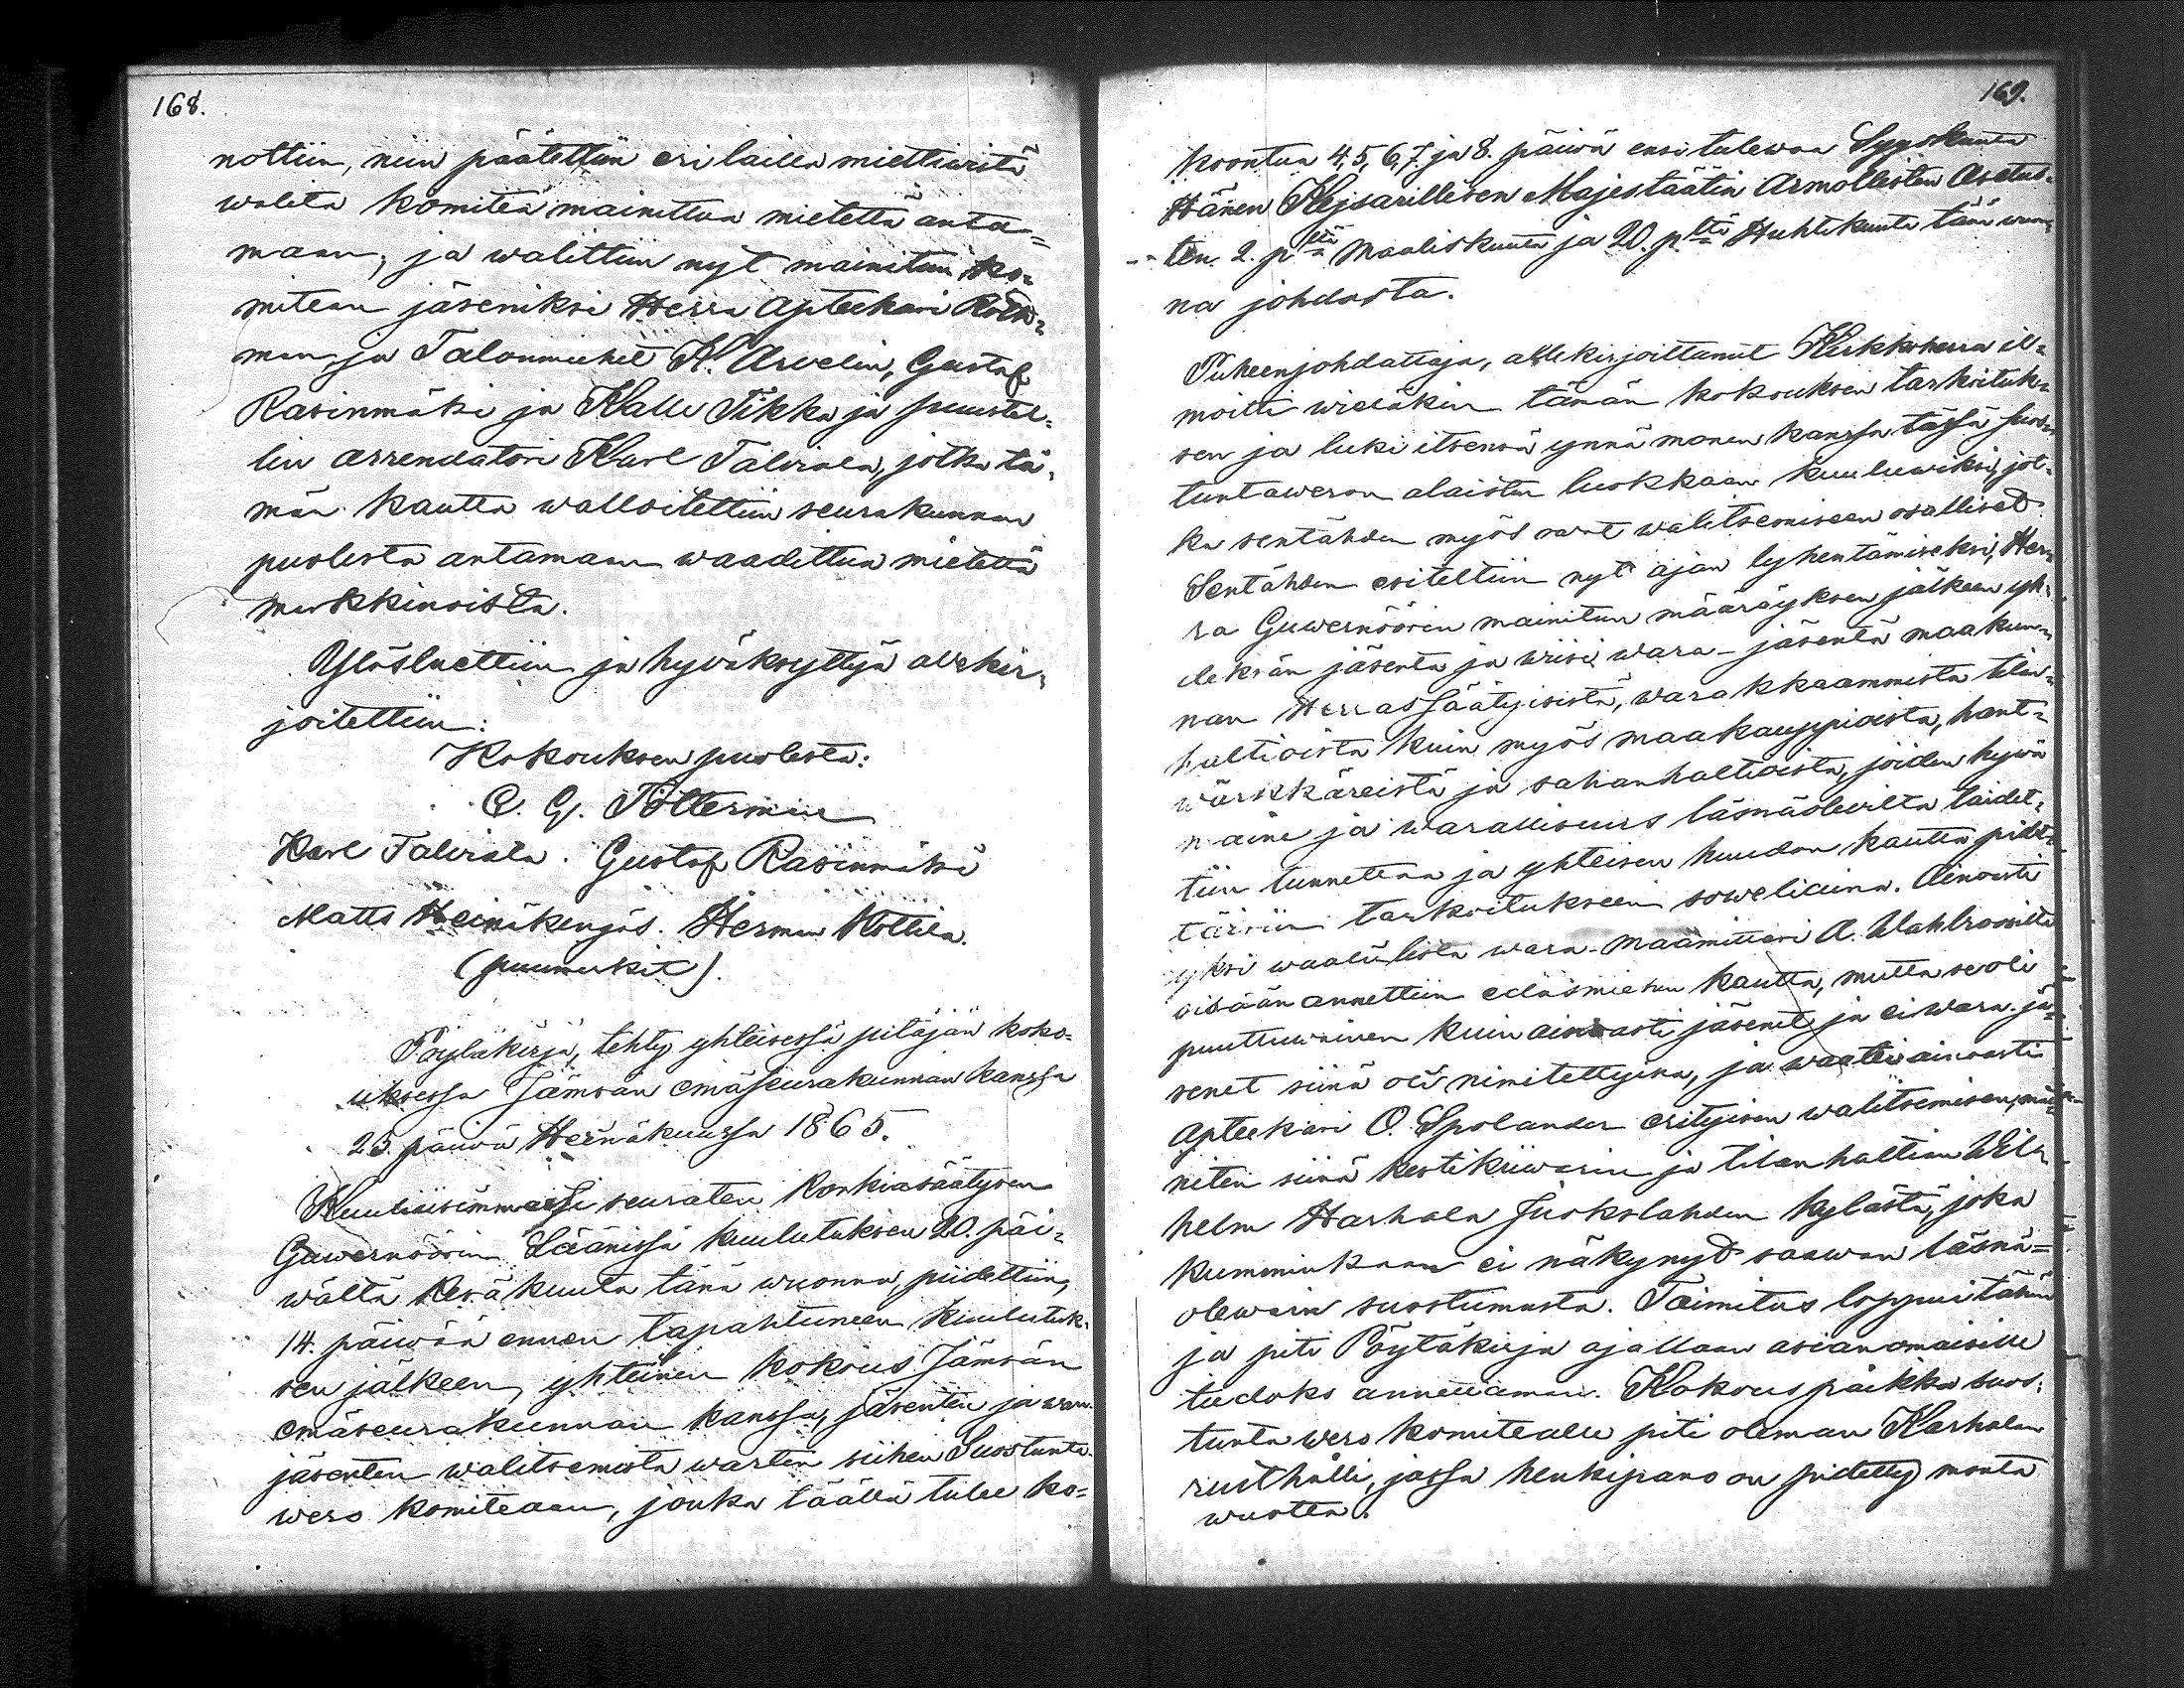 168.
nottiin, niin päätettiin erilailla miettiwistä
walita komitea mainittua mietettä anta=
maan, ja walittiin nyt mainitun ko=
mitean jäseniksi Herra Apteekari
man, ja Talonmiehet K. Arvelin, Gustaf
Rasinmäki ja Kalle Tikka ja puustel=
lin arrendatori Karl Talviala, jotka tä=
män kautta walloitettiin seurakunnan
puolesta antamaan waadittua mietettä
markkinoista.
Ylösluettiin ja hyväksyttyä allekir=
joitettiin:
Kokouksen puolesta:
C. G. Tötterman
Karl Talviala. Gustaf Rasinmäki
Matts Heinäkenjäs. Herman Kottila.
(puumerkit).
Pöytäkirja, tehty yhteisessä pitäjän koko=
uksessa Jämsän emäseurakunnan kanssa
23. päiwä Heinäkuussa 1865.
Kuuliaisimmasti seuraten Korkiasäätysen
Guwernöörin Läänissä kuulutuksen 20. päi=
wältä Kesäkuuta tänä wuonna, piidettiin,
14. päiwää ennen tapahtuneen kuulutuk=
sen jälkeen, yhteinen kokous Jämsän
emäseurakunnan kanssa, jäsenten ja wara
jäsenten walitsemista warten siihen Suostunta
wero komiteaan, jonka täällä tulee ko=
169.
koontua 4, 5, 6, 7. ja 8. päiwä ensitulewaa Syyskuuta
Hänen Kejsarillisen Majestäätin Armollisten Asetus=
ten 2. p:ltä Maaliskuuta ja 20. p:ltä Huhtikuuta tänä wuon=
na johdosta.
Puheenjohdattaja, allekirjoittanut Kirkkoherra il=
moitti wieläkin tämän kokouksen tarkoituk=
sen ja luki itsensä ynnä monen kanssa tässä suos=
tuntaweron alaisten luokkaan kuuluwiksi, jot=
ka sentähden myös owat walitsemiseen osalliset.
Sentähden esiteltiin nyt ajan lyhentämiseksi, Her=
ra Guwernöörin mainitun määräyksen jälkeen yh=
deksän jäsentä ja wiisi wara-jäsentä maakun=
nan Herrassäätyisistä, warakkaammista tilan=
haltioista kuin myös maakauppioista, hant=
wärkkäreistä ja sahanhaltioista, joiden hywä
maine ja warallisuus läsnäolewilta taidet=
tiin tunnettaa ja yhteisen huudon kautta pidet=
täisiin tarkoitukseen soweliaina. Ainoasti
yksi waalilista wara-maamittari A. Wahlroosilta
sisään annettiin edusmiehen kautta, mutta se oli
puuttuwainen kuin ainoasti jäsenet ja ei wara-jä=
senet siinä oli nimitettyinä, ja waati ainoasti
Apteekari O. Spolander erityisen walitsemisen,
niten siinä kestikiiwarin ja tilanhaltian Wil=
helm Harhala Juokslahden kylästä, joka
kumminkaan ei näkynyt saawan läsnä=
olewain suostumusta. Toimitus loppui tähän
ja piti Pöytäkirja ajallaan asianomaisille
tiedoks annettaman. Kokouspaikka suos=
tunta wero komitealle piti oleman Karhalan
rusthålli, jossa henkipano on pidetty monta
wuotta.